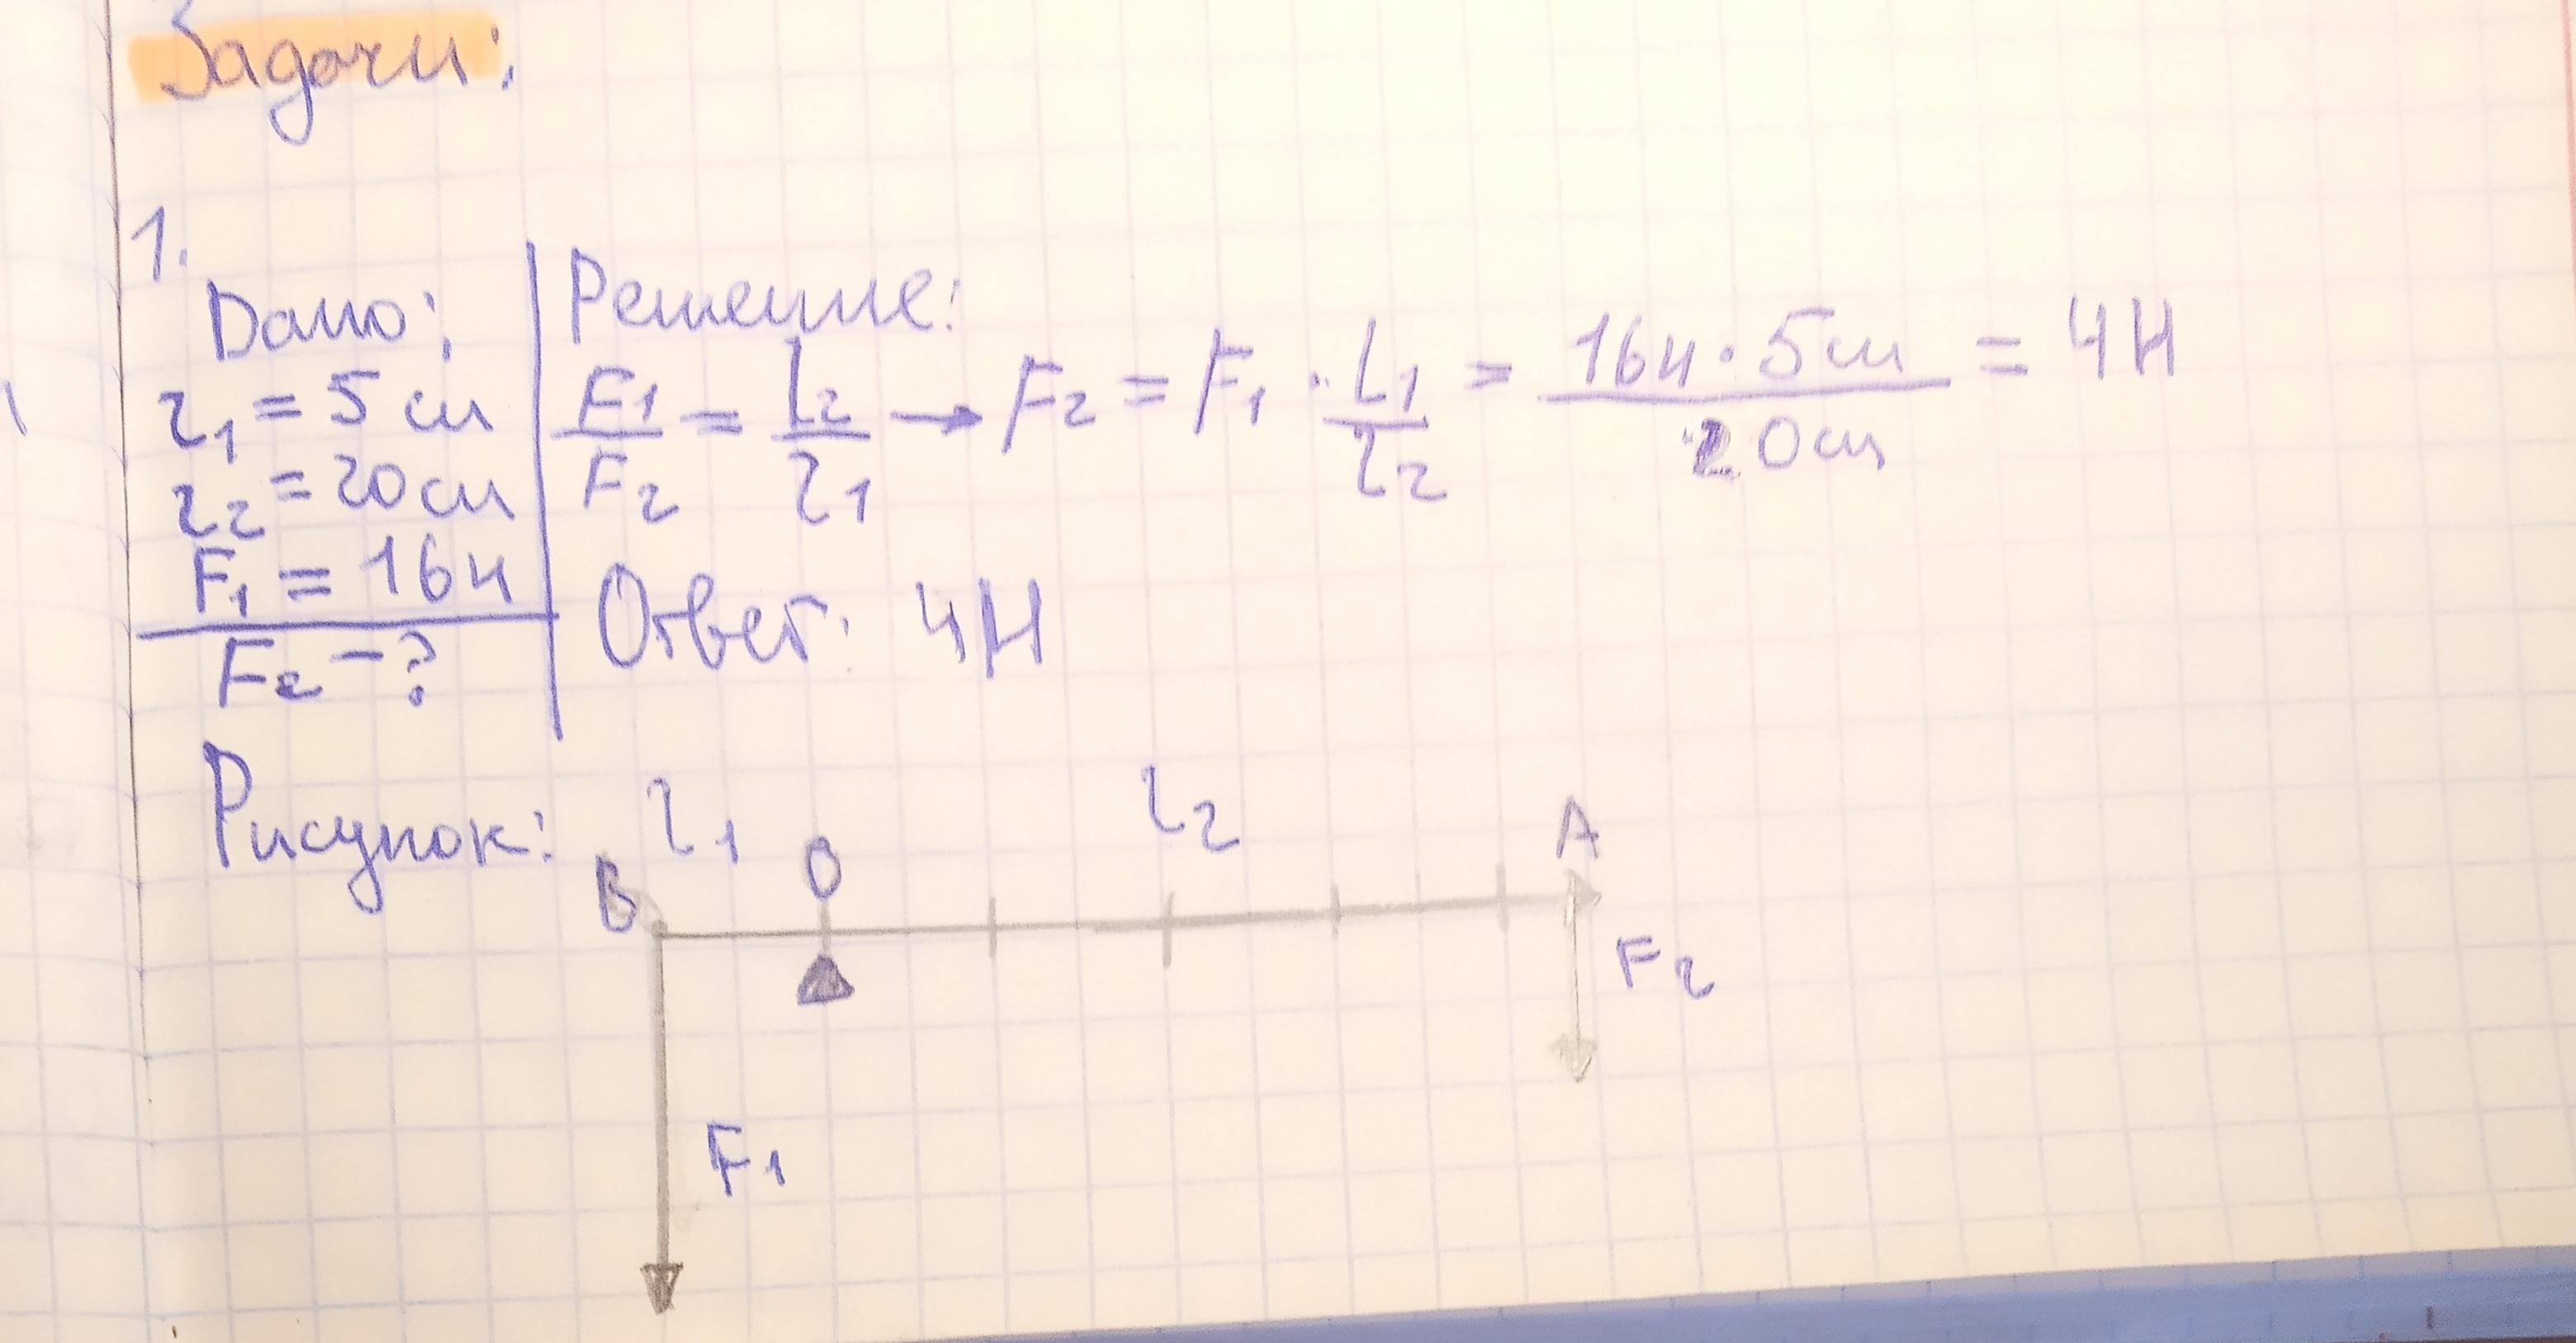 Задачи:
1.
Дано:
l₁ = 5 см
l₂ = 20 см
F₁ = 16 н
F₂ - ?
Решение:
F₁/F₂ = l₂/l₁ → F₂ = F₁ · l₁/l₂ = 16н · 5см/20см = 4Н
Ответ: 4Н
Рисунок:
l₁ l₂
B O A
F₂
F₁